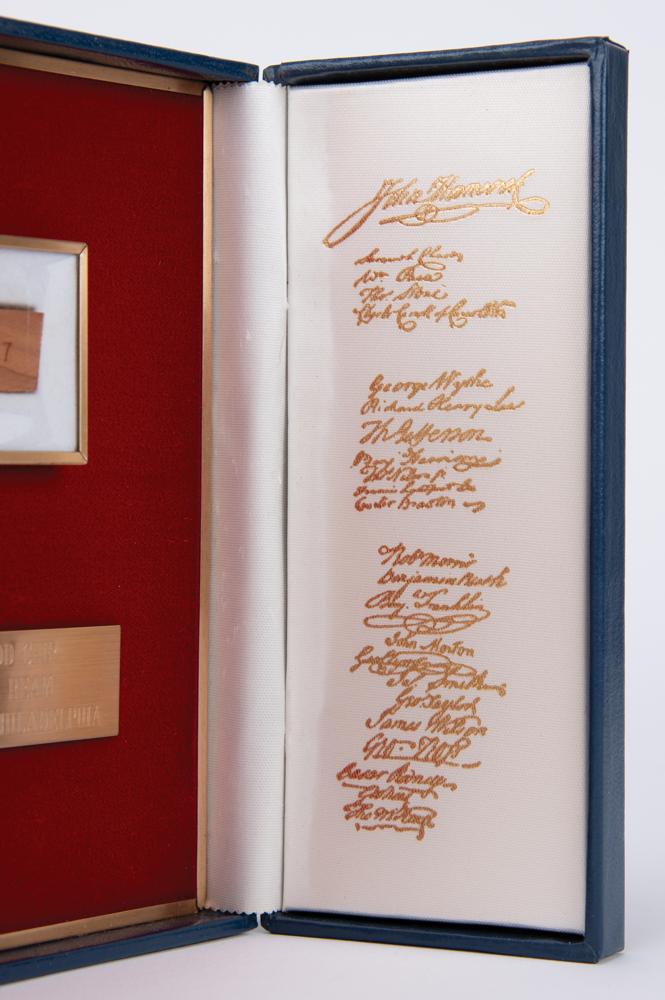 7
OD CHIP
BEAM
HILADELPHIA
John Hancock
Samuel Chase
Wm Paca
Thos. Stone
Charles Carroll of Carrollton
George Wythe
Richard Henry Lee
Th Jefferson
Benj Harrison
Thos Nelson jr.
Francis Lightfoot Lee
Carter Braxton
Robt Morris
Benjamin Rush
Benj. Franklin
John Morton
Geo Clymer
Jas. Smith
Geo. Taylor
James Wilson
Geo. Ross
Caesar Rodney
Geo Read
Tho M:Kean